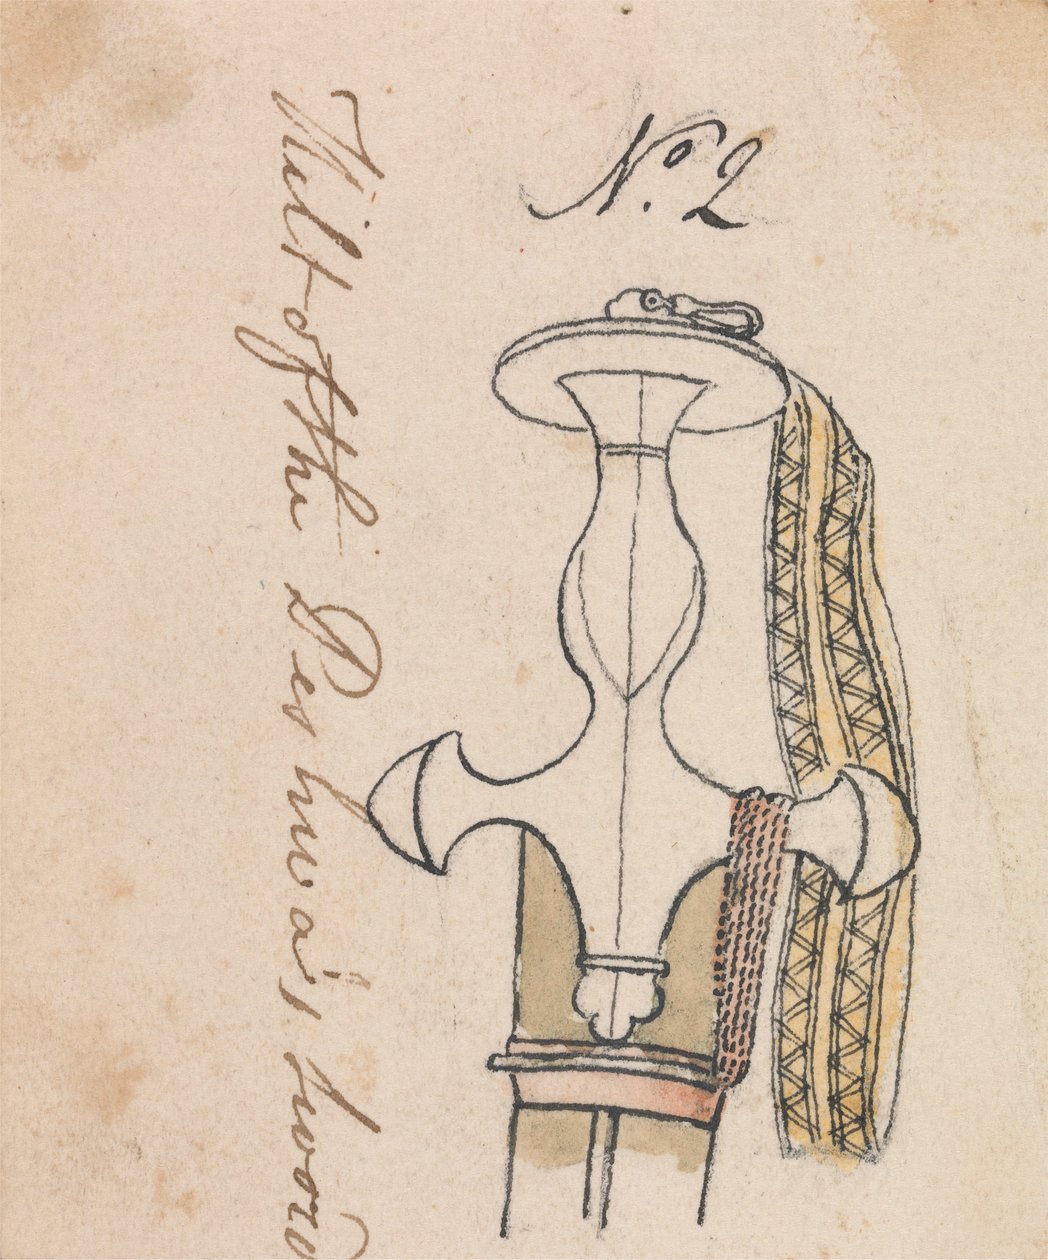 No. 2
Hilt of the Peshwa's sword